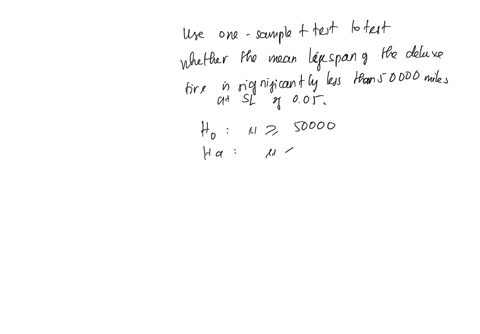 Use one-sample t test to test
whether the mean lifespan of the deluxe
tire is significantly less than 50000 miles
at SL of 0.05.
H₀: μ ≥ 50000
Ha: μ <